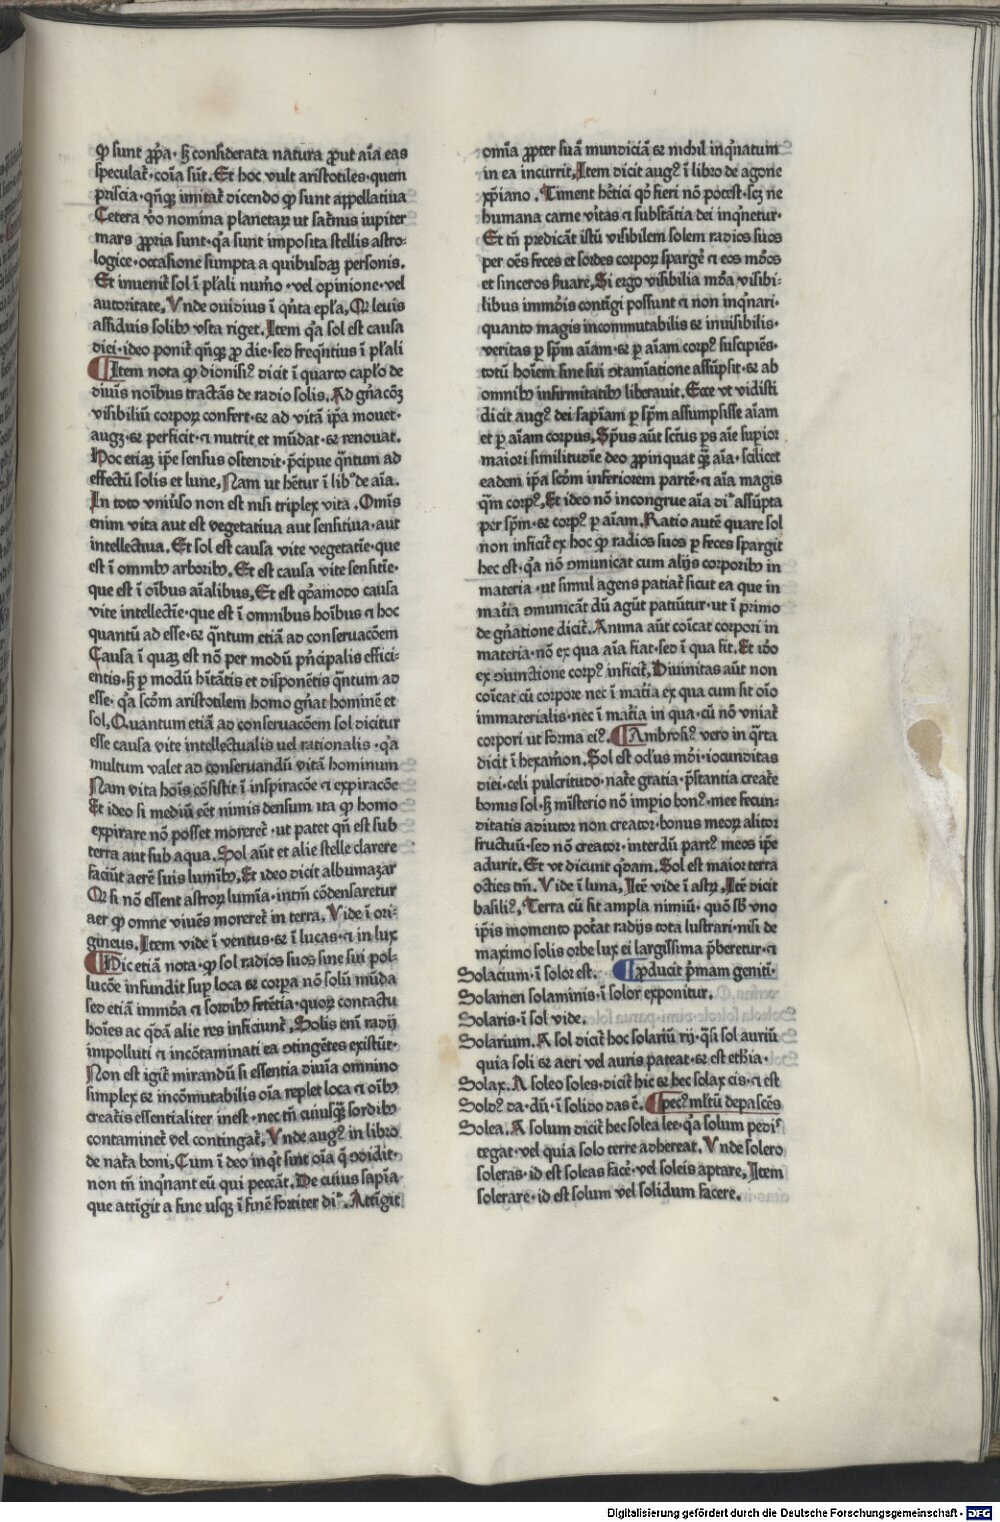 ꝙ sunt ꝓp̃a· sꝫ considerata natura ꝓut aĩa eas
speculat᷑· coĩa sũt. Et hoc vult aristotiles· quem
priscia· qñqꝫ imitat᷑ dicendo ꝙ sunt appellatiua
Cetera v̊o nomina planetaꝝ ut sat̃nus iupiter
mars ꝓpria sunt· q̃a sunt imposita stellis astro-
logice· occasione sumpta a quibusdaꝫ personis.
Et inuenit᷑ sol ĩ pl̃ali num̃o· vel opinione· vel
autoritate, Vnde ouidius ĩ qñta epl̃a, Qr leuis
assiduis solibꝫ vsta riget. Item q̃a sol est causa
diei· ideo ponit᷑ qñqꝫ ꝓ die· sed freqñtius ĩ pl̃ali
Item nota ꝙ dionisiꝰ dicit ĩ quarto capl̃o de
diuĩs noĩbus tractãs de radio solis. Ad gñacõꝫ
visibiliũ corpoꝝ confert· ⁊ ad vitã ip̃a mouet·
augꝫ· ⁊ perficit· ⁊ nutrit et mũdat· ⁊ renouat.
Hoc etiaꝫ ip̃e sensus ostendit· p̃cipue qñtum ad
effectũ solis et lune, Nam ut hẽtur ĩ lib̊ de aĩa.
In toto vniũso non est nisi triplex vita. Omĩs
enim vita aut est vegetatiua aut sensitiua· aut
intellectiua. Et sol est causa vite vegetatiẽ· que
est ĩ omnibꝫ arboribꝫ. Et est causa vite sensitiẽ·
que est ĩ oĩbus aĩalibus, Et est qd̃amodo causa
vite intellectiẽ· que est ĩ omnibus hoĩbus ⁊ hoc
quantũ ad esse· ⁊ qñtum etiã ad conseruacõem
Causa ĩ quaꝫ est nõ per modũ pñcipalis effici-
entis· sꝫ p modũ hĩtãtis et disponẽtis qñtum ad
esse· q̃a scõm aristotilem homo gñat hominẽ et
sol, Quantum etiã ad conseruacõem sol dicitur
esse causa vite intellectualis uel rationalis· q̃a
multum valet ad conseruandũ vitã hominum
Nam vita hoĩs cõsistit ĩ inspiracõe ⁊ expiracõe
Et ideo si mediũ eẽt nimis densum ita ꝙ homo
expirare nõ posset moreret᷑· ut patet qñ est sub
terra aut sub aqua. Sol aũt et alie stelle clarere
faciũt aerẽ suis lumĩbꝫ, Et ideo dicit albumazar
Qr si nõ essent astroꝝ lumĩa· intm̃ cõdensaretur
aer ꝙ omne viuẽs moreret᷑ in terra. Vide ĩ ori-
gineus, Item vide ĩ ventus· ⁊ ĩ lucas· ⁊ in lux
Hic etiã nota· ꝙ sol radios suos sine sui pol-
lucõe infundit sup loca ⁊ corpa nõ solũ mũda
sed etiã immõa ⁊ sordibꝫ fetẽtia· quoꝝ contactu
hoĩes ac qd̃ã alie res inficiunt᷑. Solis eni radij
impolluti ⁊ incõtaminati ea ꝯtingẽtes existũt·
Non est igit᷑ mirandũ si essentia diuĩa omnino
simplex ⁊ incõmutabilis oĩa replet loca ⁊ oĩbꝫ
creat̃is essentialiter inest· nec tñ cuiusqꝫ sordibꝫ
contaminet᷑ vel contingat᷑, Vnde augꝰ in libro
de nat̃a boni, Cum ĩ deo inqt̃ sint oĩa q̃ ꝯdidit·
non tñ inqĩnant eũ qui peccãt. De cuius sapĩa·
que attĩgit a fine usqꝫ ĩ finẽ fortiter diʳ. Attĩgit
omĩa ꝓpter suã mundiciã ⁊ nichil inqĩnatum
in ea incurrit, Item dicit augꝰ ĩ libro de agone
xp̃iano. Timent hẽtici qd̊ fieri nõ potest· scꝫ ne
humana carne ṽitas ⁊ substãtia dei inqĩnetur·
Et tñ predicãt istũ visibilem solem radios suos
per oẽs feces et sordes corpoꝝ spargẽ ⁊ eos mũdos
et sinceros ẜuare, Si ergo visibilia mũda visibi-
libus immũdis contĩgi possunt ⁊ non inqĩnari·
quanto magis incommutabilis ⁊ inuisibilis·
veritas p sp̃m aĩam· ⁊ p aĩam corpꝰ suscipiẽs·
totũ hoĩem sine sui ꝯtamiatione assũpsit· ⁊ ab
omnibꝫ infirmitatibꝫ liberauit. Ecce ut vidisti
dicit augꝰ dei sapĩam p sp̃m assumpsisse aĩam
et p aĩam corpus, Sp̃us aũt sc̃tus ps aĩe supior
maiori similitudĩe deo ꝓpinquat qꝫ aĩa· scilicet
eadem ip̃a scõm inferiorem partẽ· ⁊ aĩa magis
q̃m corpꝰ, Et ideo nõ incongrue aĩa diʳ assũpta
per sp̃m· ⁊ corpꝰ p aĩam. Ratio autẽ quare sol
non inficit᷑ ex hoc ꝙ radios suos p feces spargit
hec est· q̃a nõ ꝯmunicat cum alijs corporibꝫ in
materia· ut simul agens patiat᷑ sicut ea que in
mat̃ia ꝯmunicãt dũ agũt patiũtur· ut ĩ primo
de gñatione dicit᷑. Anima aũt coĩcat corpori in
materia· nõ ex qua aĩa fiat· sed ĩ qua sit. Et iõo
ex ꝯiunctione corpꝰ inficit᷑, Diuinitas aũt non
coĩcat cũ corpore nec ĩ mat̃ia ex qua cum sit oĩo
immaterialis· nec ĩ mat̃ia in qua· cũ nõ vniat᷑
corpori ut forma eiꝰ. Ambrosiꝰ vero in q̃rta
dicit ĩ hexam̃on. Sol est ocl̃us mũdi· iocunditas
diei· celi pulcritudo· nat̃e gratia· p̃stantia creat̃e
bonus sol· sꝫ mĩsterio nõ impio bonꝰ· mee fecun-
ditatis adiutor non creator· bonus meoꝝ alitor
fructuũ· sed nõ creator· interdũ partꝰ meos ip̃e
adurit. Et vt dicunt qd̃am. Sol est maior terra
octies tm̃. Vide ĩ luna, Itẽ vide ĩ astꝝ, Itẽ dicit
basiliꝰ, Terra cũ sit ampla nimiũ· quõ sb̃ vno
ip̃is momento pot̃at radijs tota lustrari· nisi de
maximo solis orbe lux ei largissima p̃beretur· ⁊
Solacium· ĩ solor est. ꝓducit p̃mam geniti·
Solamen solaminis· ĩ solor exponitur.
Solaris· ĩ sol vide.
Solarium. A sol dicit᷑ hoc solariũ rij· q̃si sol auriũ
quia soli ⁊ aeri vel auris pateat· ⁊ est ethĩa·
Solax. A soleo soles· dicit᷑ hic ⁊ hec solax cis· ⁊ est
Soldꝰ da· dũ· ĩ solido das ẽ. specꝰ ml̃tũ depascẽs
Solea. A solum dicit᷑ hec solea lee· q̃a solum pediˢ
tegat· vel quia solo terre adhereat. Vnde solero
soleras· id est soleas facẽ· vel soleis aptare, Item
solerare· id est solum vel solidum facere.
Digitalisierung gefördert durch die Deutsche Forschungsgemeinschaft - DFG